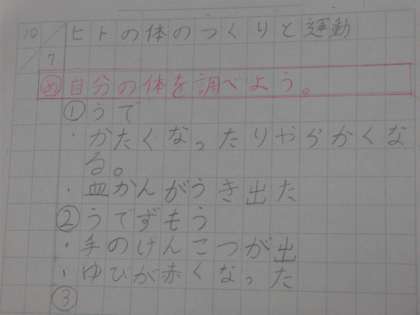 10/7 ヒトの体のつくりと運動
め 自分の体を調べよう。
① うで
・かたくなったりやらかくな
る。
・血かんがうき出た
② うでずもう
・手のけんこつが出
・ゆびが赤くなった
③